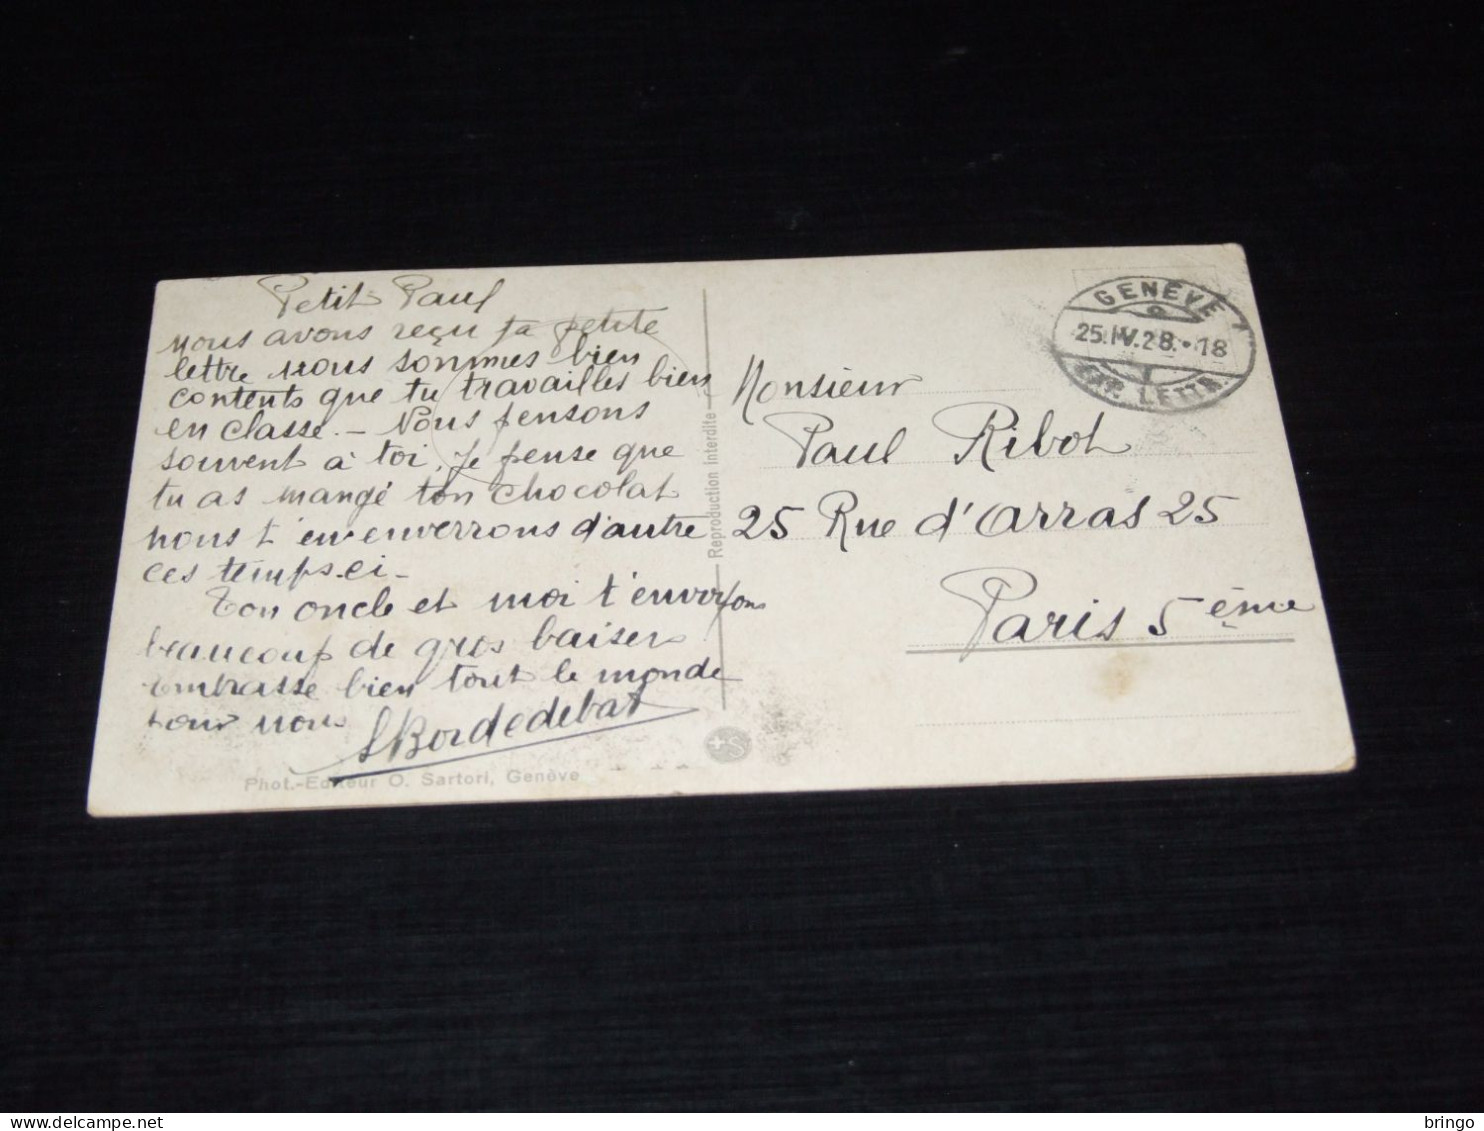 Petit Paul
nous avons reçu ta petite
lettre nous sommes bien
contents que tu travailles bien
en classe. - Nous pensons
souvent à toi. je pense que
tu as mangé ton chocolat
nous t'en enverrons d'autre
ces temps-ci -
Ton oncle et moi t'envoyons
beaucoup de gros baisers
embrasse bien tout le monde
pour nous
SBordedebat
Phot.-Editeur O. Sartori, Genève
Reproduction interdite
+S
GENÈVE 1
25.IV.28.-18
EXP. LETTR.
Monsieur
Paul Ribot
25 Rue d'Arras 25
Paris 5ème
bringo